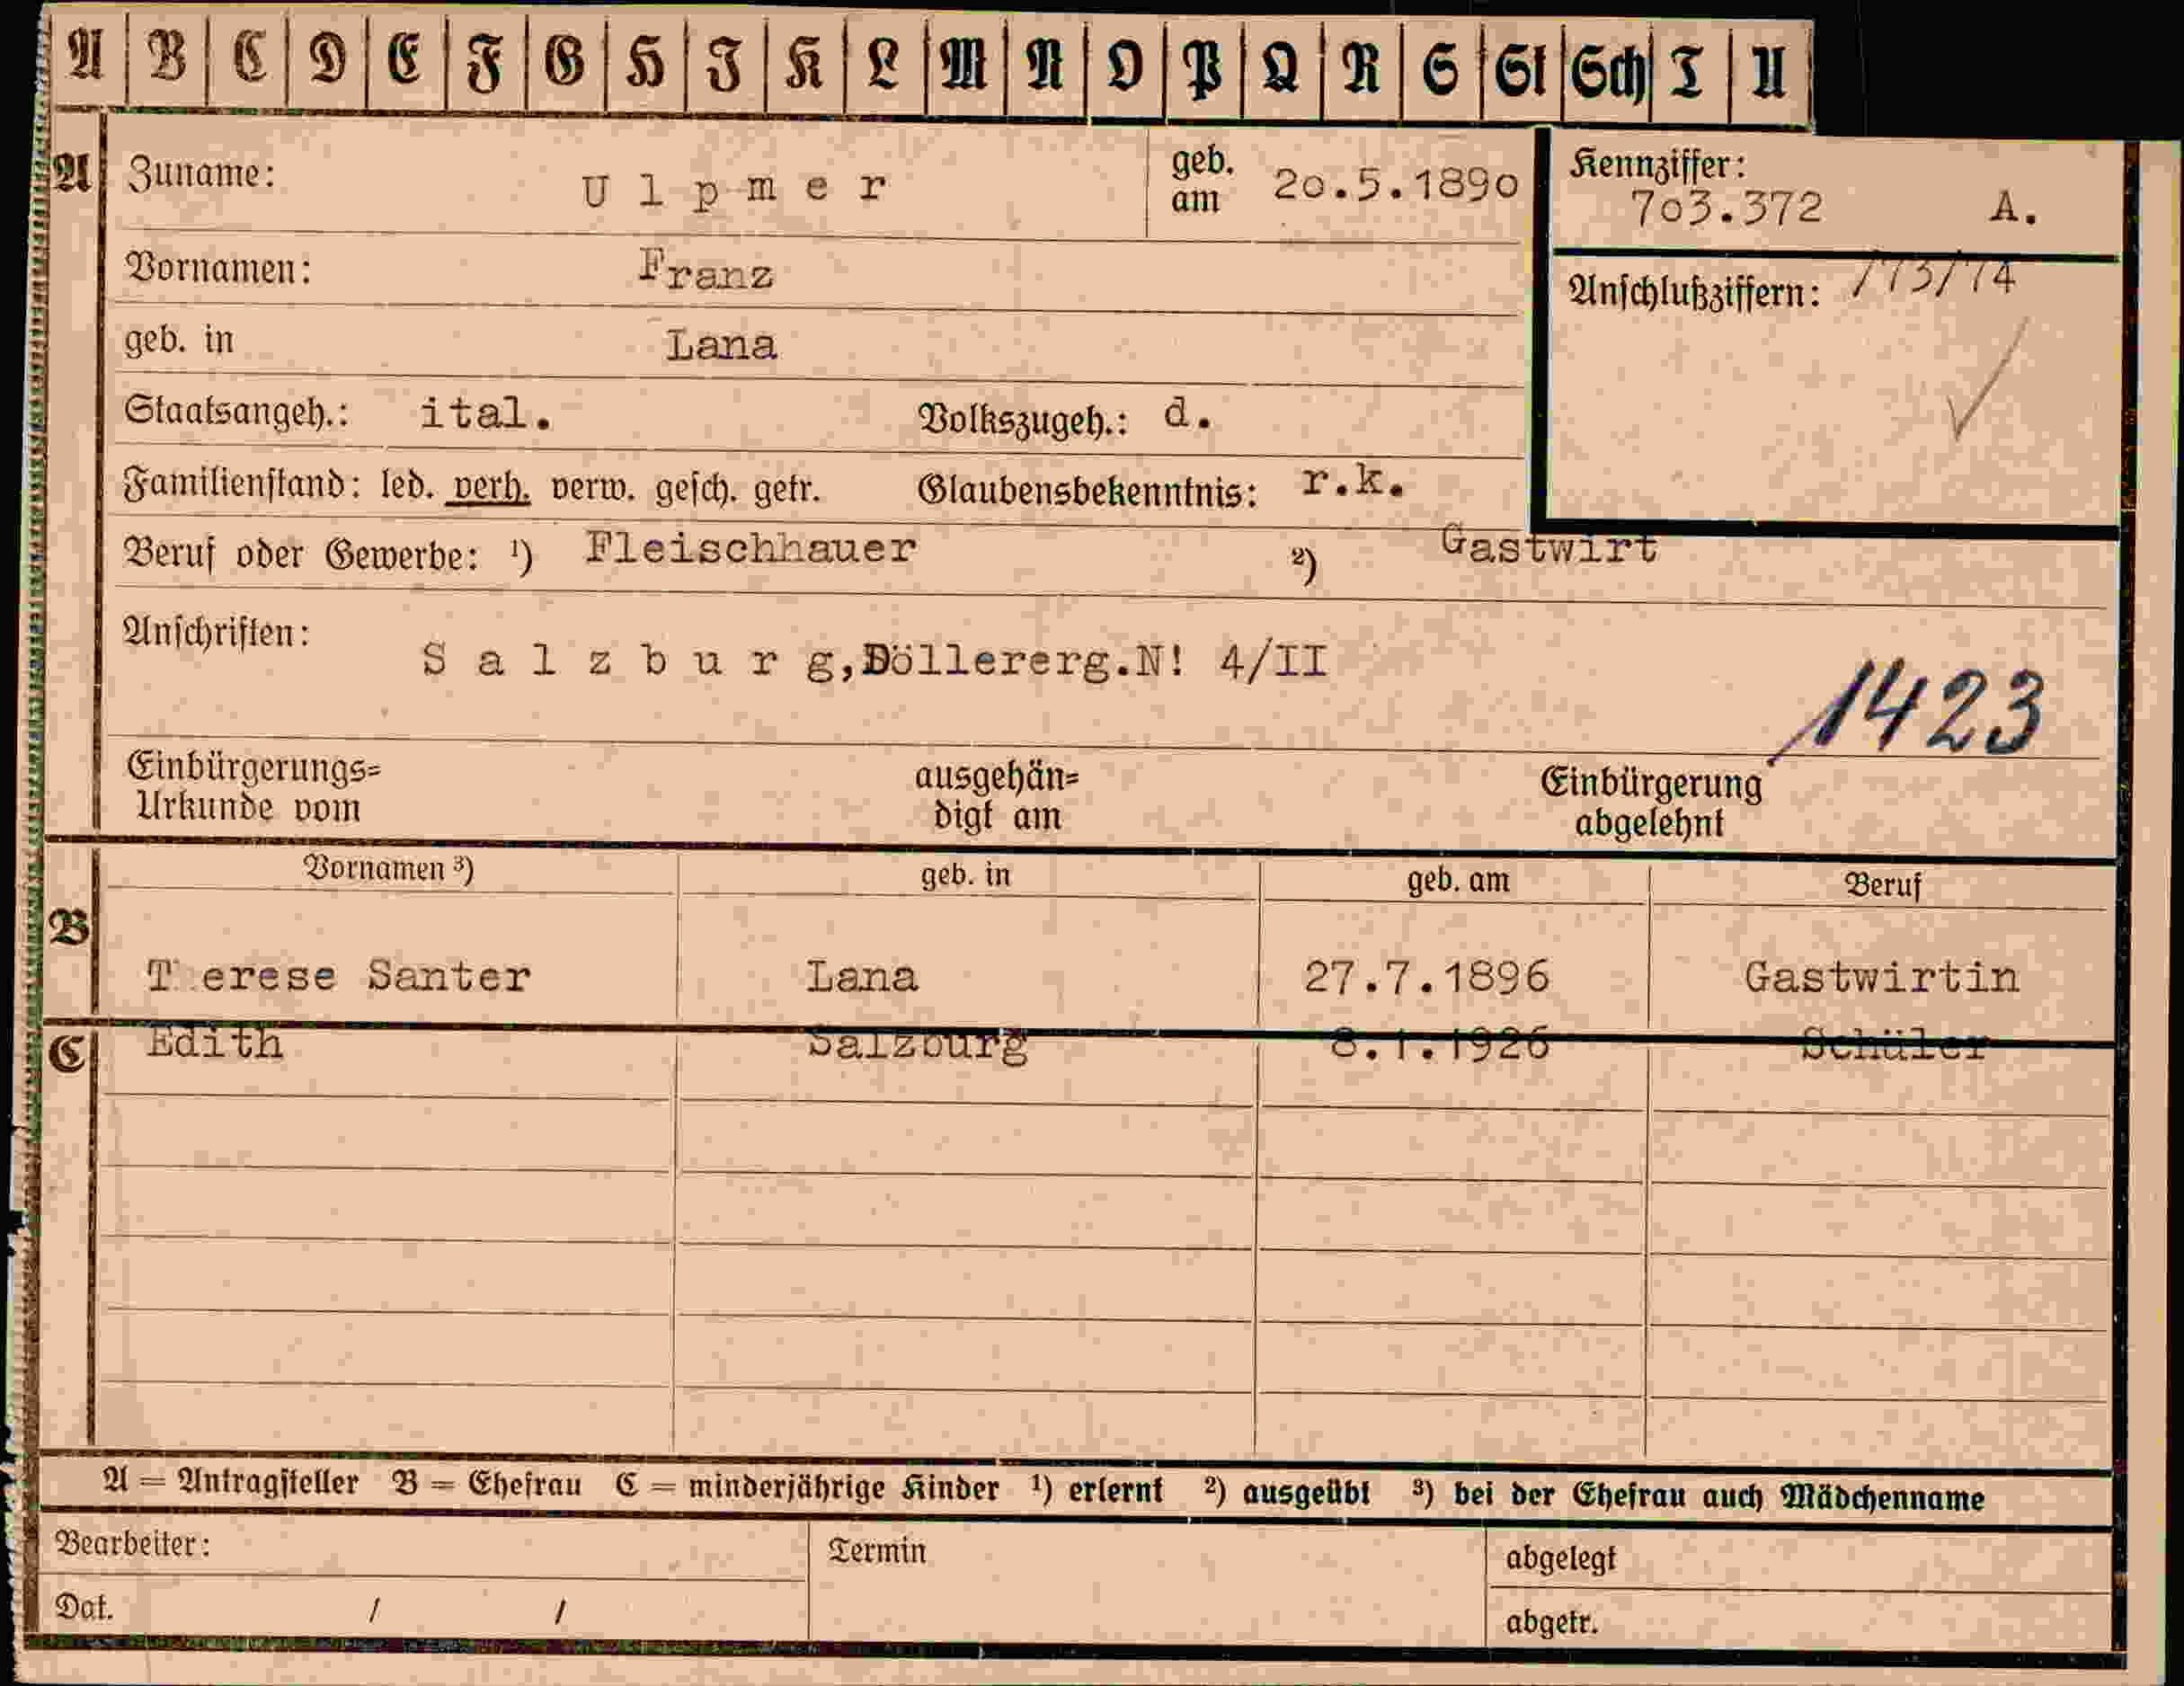 A B C D E F G H J K L M N O P Q R S St Sch T U
A Zuname: Ulpmer geb. am 20.5.1890 Kennziffer: 703.372 A.
Vornamen: Franz Anschlußziffern: /73/74
geb. in Lana
Staatsangeh.: ital. Volkszugeh.: d.
Familienstand: led. verh. verw. gesch. getr. Glaubensbekenntnis: r.k.
Beruf oder Gewerbe: ¹) Fleischhauer ²) Gastwirt
Anschriften: Salzburg,Döllererg.N! 4/II
1423
Einbürgerungs= ausgehän= Einbürgerung
Urkunde vom digt am abgelehnt
Vornamen ³) geb. in geb. am Beruf
B T erese Santer Lana 27.7.1896 Gastwirtin
C Edith Salzburg 8.1.1926 Schüler
A = Antragsteller B = Ehefrau C = minderjährige Kinder ¹) erlernt ²) ausgeübt ³) bei der Ehefrau auch Mädchenname
Bearbeiter: Termin abgelegt
Dat. / / abgetr.